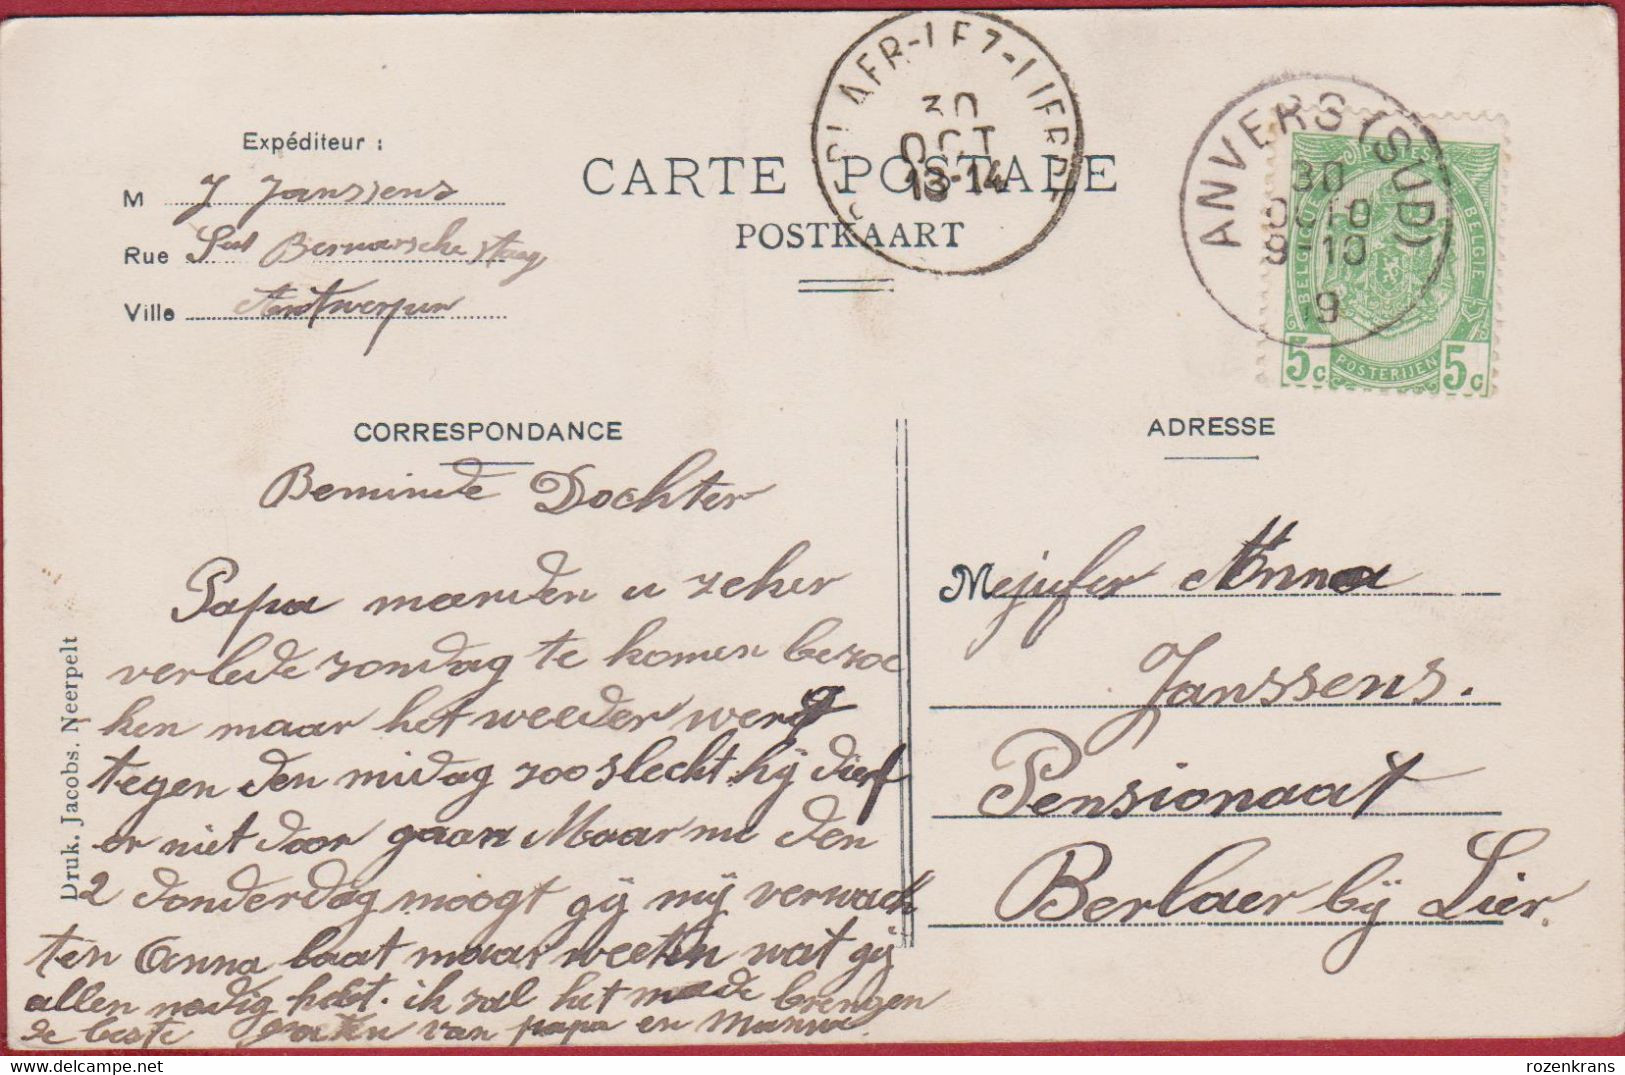 Expéditeur :
M J Janssens
Rue Sint Bernarsche staag
Ville Antwerpen
CARTE POSTALE
POSTKAART
BERLAER-LEZ-LIERRE
30
OCT
13-14
ANVERS (SUD)
30
OCT 10
9-10
19
POSTES
BELGIQUE
BELGIË
POSTERIJEN
5c
5c
CORRESPONDANCE
ADRESSE
Beminde Dochter
Papa manden u zeker
verlede zondag te komen bezoe
ken maar het weeder werd
tegen den midag zoo slecht hij dierf
er niet door gaan Maar me den
2 donderdag moogt gij mij verwach
ten Anna laat maar weeten wat gij
allen nodig hebt. ik zal het mede brengen
de beste groeten van papa en Mama.
Mejufer Anna
Janssens.
Pensionaat
Berlaer bij Lier.
Druk. Jacobs. Neerpelt
rozenkrans